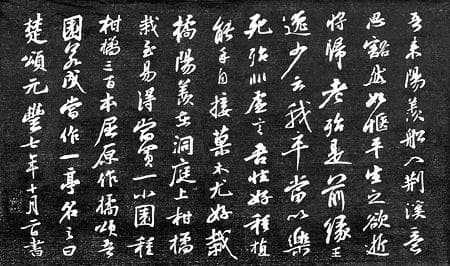 吾來陽羨船入荆溪意
思豁然如愜平生之欲逝
將歸老殆是前緣王
逸少云我卒當以樂
死殆非虛言吾性好種植
能手自接菓木尤好栽
橘陽羨在洞庭上柑橘
栽至易得當買一小園種
柑橘三百本屈原作橘頌吾
園若成當作一亭名之曰
楚頌元豐七年十月二日書